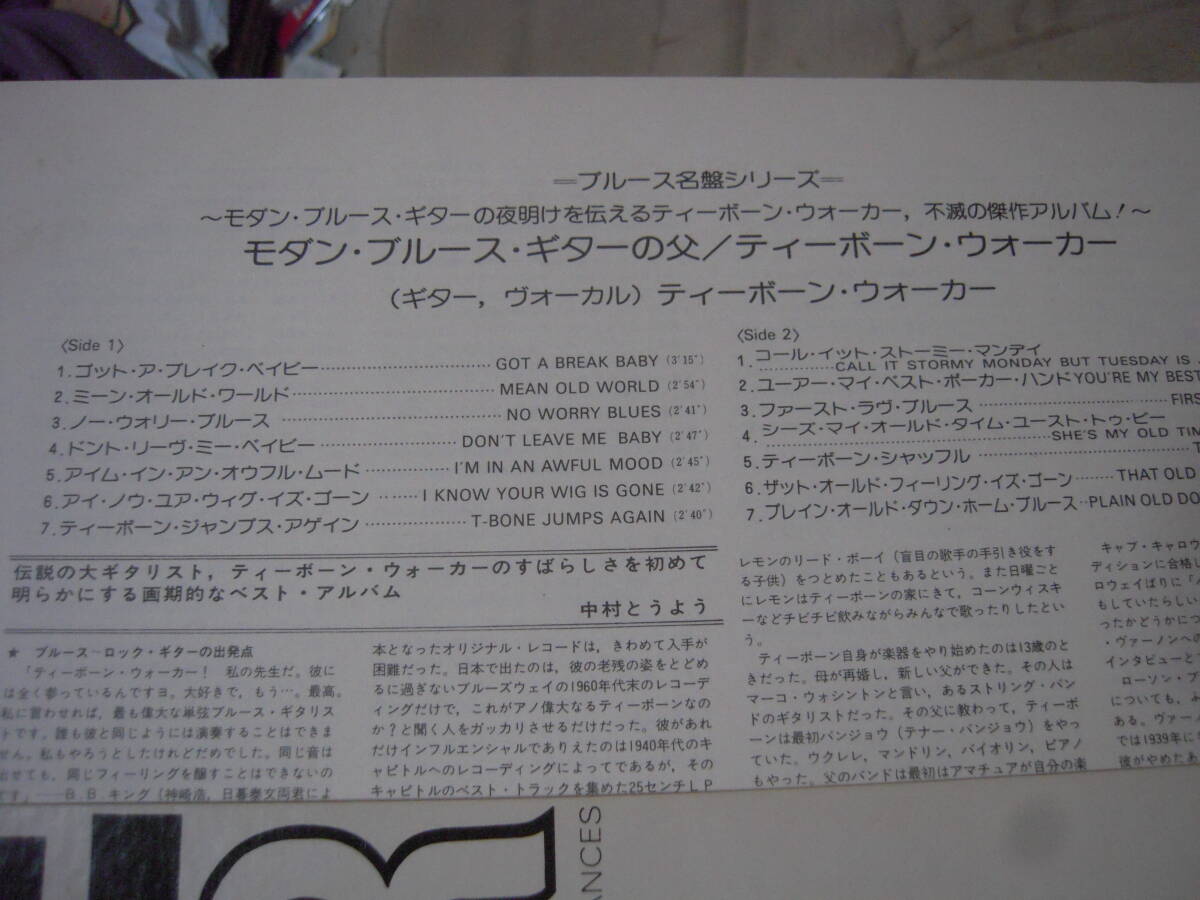 ＝ブルース名盤シリーズ＝
～モダン・ブルース・ギターの夜明けを伝えるティーボーン・ウォーカー，不滅の傑作アルバム！～
モダン・ブルース・ギターの父／ティーボーン・ウォーカー
（ギター，ヴォーカル）ティーボーン・ウォーカー
〈Side 1〉
1. ゴット・ア・ブレイク・ベイビー……………………GOT A BREAK BABY (3'15")
2. ミーン・オールド・ワールド……………………MEAN OLD WORLD (2'54")
3. ノー・ウォリー・ブルース……………………NO WORRY BLUES (2'41")
4. ドント・リーヴ・ミー・ベイビー……………DON'T LEAVE ME BABY (2'47")
5. アイム・イン・アン・オウフル・ムード…………I'M IN AN AWFUL MOOD (2'45")
6. アイ・ノウ・ユア・ウィグ・イズ・ゴーン……I KNOW YOUR WIG IS GONE (2'42")
7. ティーボーン・ジャンプス・アゲイン……………T-BONE JUMPS AGAIN (2'40")
〈Side 2〉
1. コール・イット・ストーミー・マンデイ
…………CALL IT STORMY MONDAY BUT TUESDAY IS
2. ユーアー・マイ・ベスト・ポーカー・ハンドYOU'RE MY BEST
3. ファースト・ラヴ・ブルース……………………FIRS
4. シーズ・マイ・オールド・タイム・ユースト・トゥ・ビー
……………………………SHE'S MY OLD TIM
5. ティーボーン・シャッフル……………………T
6. ザット・オールド・フィーリング・イズ・ゴーン………THAT OLD
7. プレイン・オールド・ダウン・ホーム・ブルース‥PLAIN OLD DO
伝説の大ギタリスト，ティーボーン・ウォーカーのすばらしさを初めて
明らかにする画期的なベスト・アルバム
中村とうよう
★ ブルース～ロック・ギターの出発点
「ティーボーン・ウォーカー！ 私の先生だ。彼に
は全く参っているんですヨ。大好きで，もう…。最高。
私に言わせれば，最も偉大な単弦ブルース・ギタリス
トです。誰も彼と同じようには演奏することはできま
せん。私もやろうとしたけれどだめでした。同じ音は
出せても，同じフィーリングを醸すことはできないの
です」――B.B.キング（神崎浩，日暮泰文両君によ
本となったオリジナル・レコードは，きわめて入手が
困難だった。日本で出たのは，彼の老残の姿をとどめ
るに過ぎないブルーズウェイの1960年代末のレコーデ
ィングだけで，これがアノ偉大なるティーボーンなの
か？と聞く人をガッカリさせるだけだった。彼があれ
だけインフルエンシャルでありえたのは1940年代のキ
ャピトルへのレコーディングによってであるが，その
キャピトルのベスト・トラックを集めた25センチLP
レモンのリード・ボーイ（盲目の歌手の手引き役をす
る子供）をつとめたこともあるという。また日曜ごと
にレモンはティーボーンの家にきて，コーンウィスキ
ーなどチビチビ飲みながらみんなで歌ったりしたとい
う。
ティーボーン自身が楽器をやり始めたのは13歳のと
きだった。母が再婚し，新しい父ができた。その人は
マーコ・ウォシントンと言い，あるストリング・バン
ドのギタリストだった。その父に教わって，ティーボ
ーンは最初バンジョウ（テナー・バンジョウ）をやっ
ていた。ウクレレ，マンドリン，バイオリン，ピアノ
もやった。父のバンドは最初はアマチュアが自分の楽
キャブ・キャロウ
ディションに合格し
ロウェイばりに「
もしていたらしい
ったかどうかにつ
・ヴァーノンへの
インタビューと
ローソン・ブ
についても，
ある。ヴァー
では1939年に
彼がやめたあ
ANCES